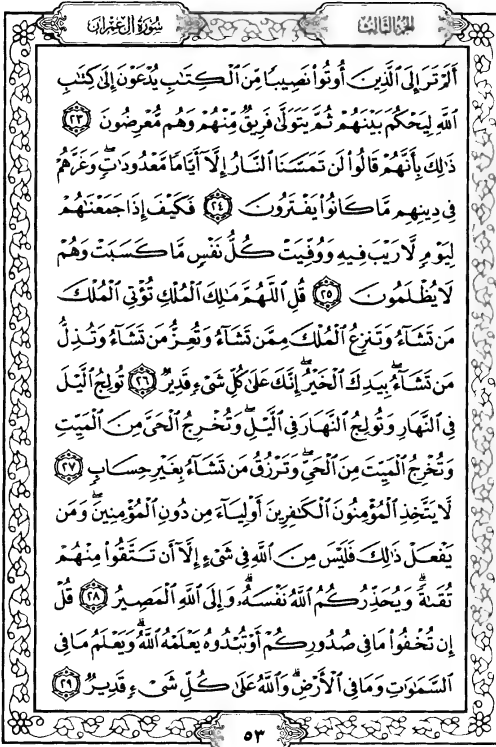 سُورَةُ آلِ عِمْرَانَ
الجُزْءُ الثَّالِثُ
أَلَمْ تَرَ إِلَى ٱلَّذِينَ أُوتُوا۟ نَصِيبًا مِّنَ ٱلْكِتَٰبِ يُدْعَوْنَ إِلَىٰ كِتَٰبِ
ٱللَّهِ لِيَحْكُمَ بَيْنَهُمْ ثُمَّ يَتَوَلَّىٰ فَرِيقٌ مِّنْهُمْ وَهُم مُّعْرِضُونَ ٢٣
ذَٰلِكَ بِأَنَّهُمْ قَالُوا۟ لَن تَمَسَّنَا ٱلنَّارُ إِلَّآ أَيَّامًا مَّعْدُودَٰتٍ ۖ وَغَرَّهُمْ
فِى دِينِهِم مَّا كَانُوا۟ يَفْتَرُونَ ٢٤ فَكَيْفَ إِذَا جَمَعْنَٰهُمْ
لِيَوْمٍ لَّا رَيْبَ فِيهِ وَوُفِّيَتْ كُلُّ نَفْسٍ مَّا كَسَبَتْ وَهُمْ
لَا يُظْلَمُونَ ٢٥ قُلِ ٱللَّهُمَّ مَٰلِكَ ٱلْمُلْكِ تُؤْتِى ٱلْمُلْكَ
مَن تَشَآءُ وَتَنزِعُ ٱلْمُلْكَ مِمَّن تَشَآءُ وَتُعِزُّ مَن تَشَآءُ وَتُذِلُّ
مَن تَشَآءُ ۖ بِيَدِكَ ٱلْخَيْرُ ۖ إِنَّكَ عَلَىٰ كُلِّ شَىْءٍ قَدِيرٌ ٢٦ تُولِجُ ٱلَّيْلَ
فِى ٱلنَّهَارِ وَتُولِجُ ٱلنَّهَارَ فِى ٱلَّيْلِ ۖ وَتُخْرِجُ ٱلْحَىَّ مِنَ ٱلْمَيِّتِ
وَتُخْرِجُ ٱلْمَيِّتَ مِنَ ٱلْحَىِّ ۖ وَتَرْزُقُ مَن تَشَآءُ بِغَيْرِ حِسَابٍ ٢٧
لَّا يَتَّخِذِ ٱلْمُؤْمِنُونَ ٱلْكَٰفِرِينَ أَوْلِيَآءَ مِن دُونِ ٱلْمُؤْمِنِينَ ۖ وَمَن
يَفْعَلْ ذَٰلِكَ فَلَيْسَ مِنَ ٱللَّهِ فِى شَىْءٍ إِلَّآ أَن تَتَّقُوا۟ مِنْهُمْ
تُقَىٰةً ۗ وَيُحَذِّرُكُمُ ٱللَّهُ نَفْسَهُۥ ۗ وَإِلَى ٱللَّهِ ٱلْمَصِيرُ ٢٨ قُلْ
إِن تُخْفُوا۟ مَا فِى صُدُورِكُمْ أَوْ تُبْدُوهُ يَعْلَمْهُ ٱللَّهُ ۗ وَيَعْلَمُ مَا فِى
ٱلسَّمَٰوَٰتِ وَمَا فِى ٱلْأَرْضِ ۗ وَٱللَّهُ عَلَىٰ كُلِّ شَىْءٍ قَدِيرٌ ٢٩
٥٣